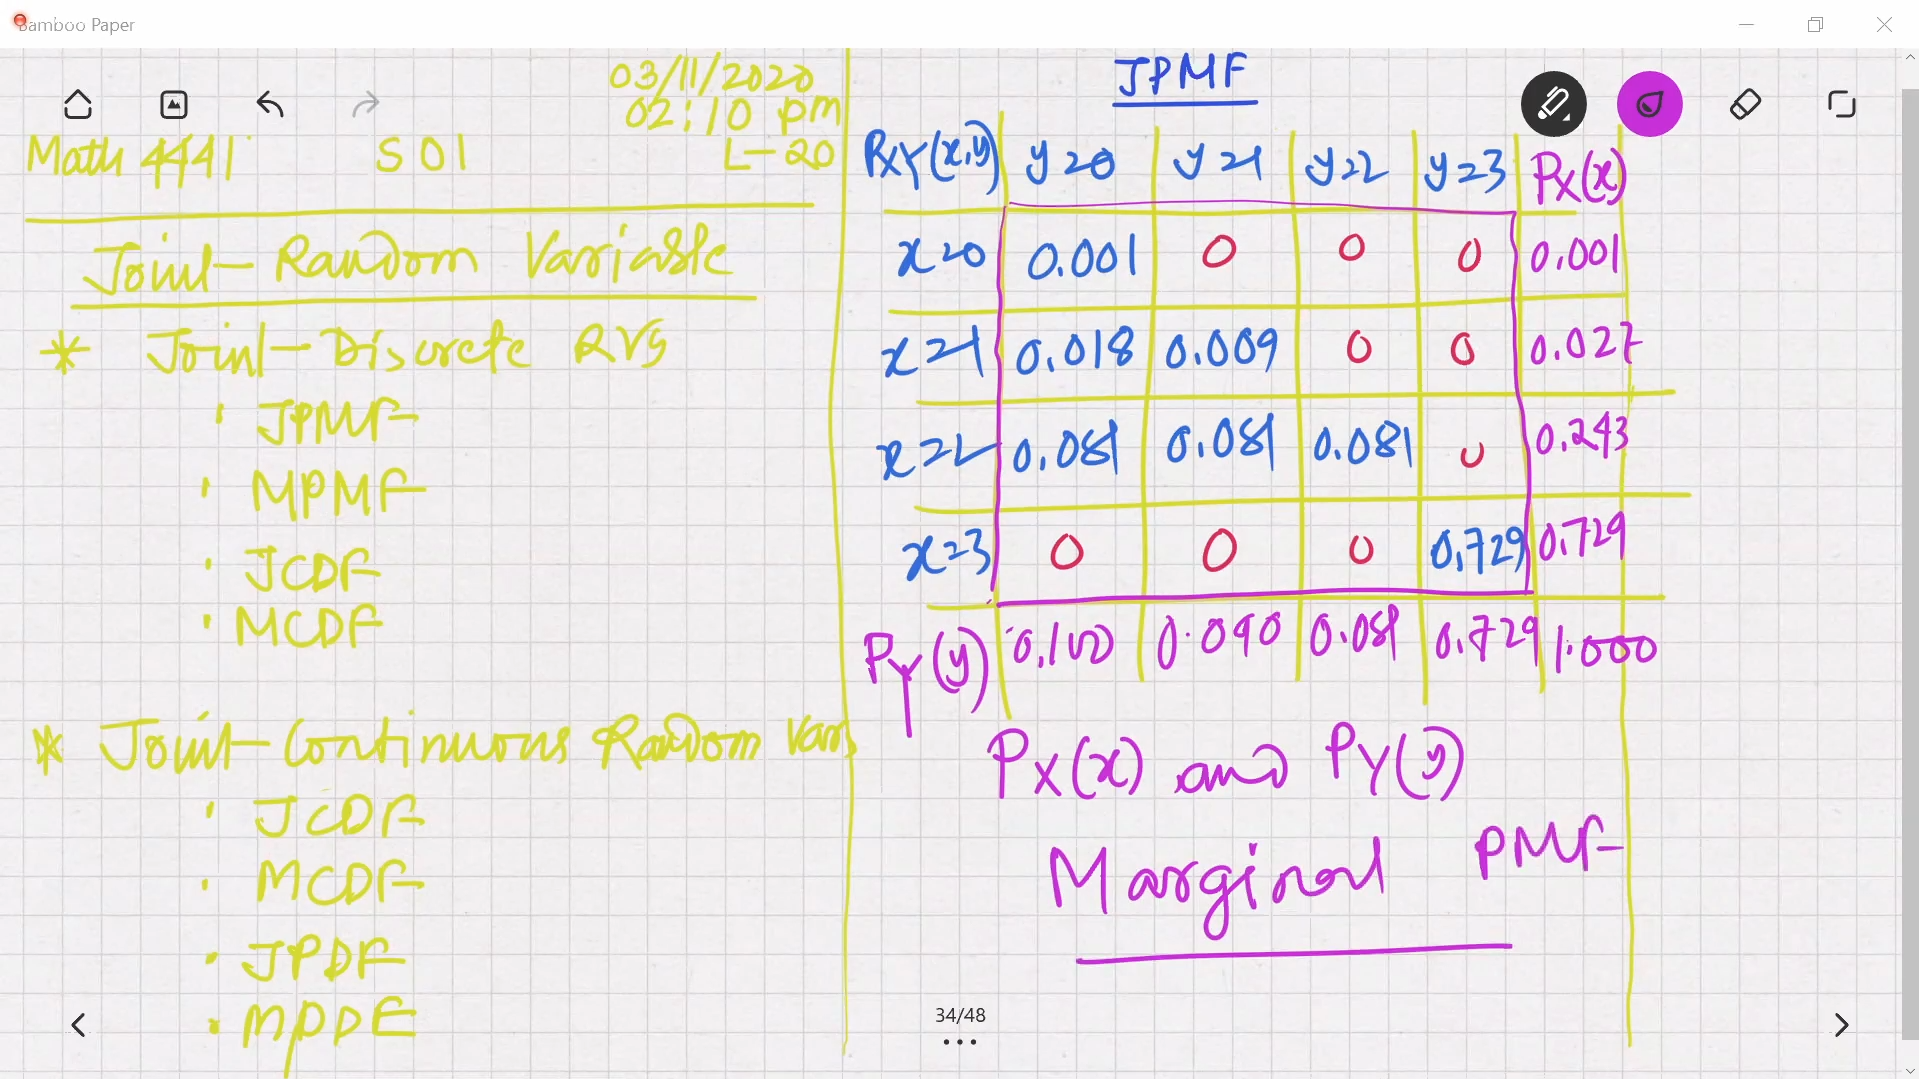 Bamboo Paper
03/11/2020
02:10 pm
Math 4441 S01 L-20
Joint Random Variable
* Joint Discrete RVs
· JPMF
· MPMF
· JCDF
· MCDF
* Joint Continuous Random Vars
· JCDF
· MCDF
· JPDF
· MPDF
JPMF
PXY(x,y) y=0 y=1 y=2 y=3 PX(x)
x=0 0.001 0 0 0 0.001
x=1 0.018 0.009 0 0 0.027
x=2 0.081 0.081 0.081 0 0.243
x=3 0 0 0 0.729 0.729
PY(y) 0.100 0.090 0.081 0.729 1.000
PX(x) and PY(y)
Marginal PMF
34/48